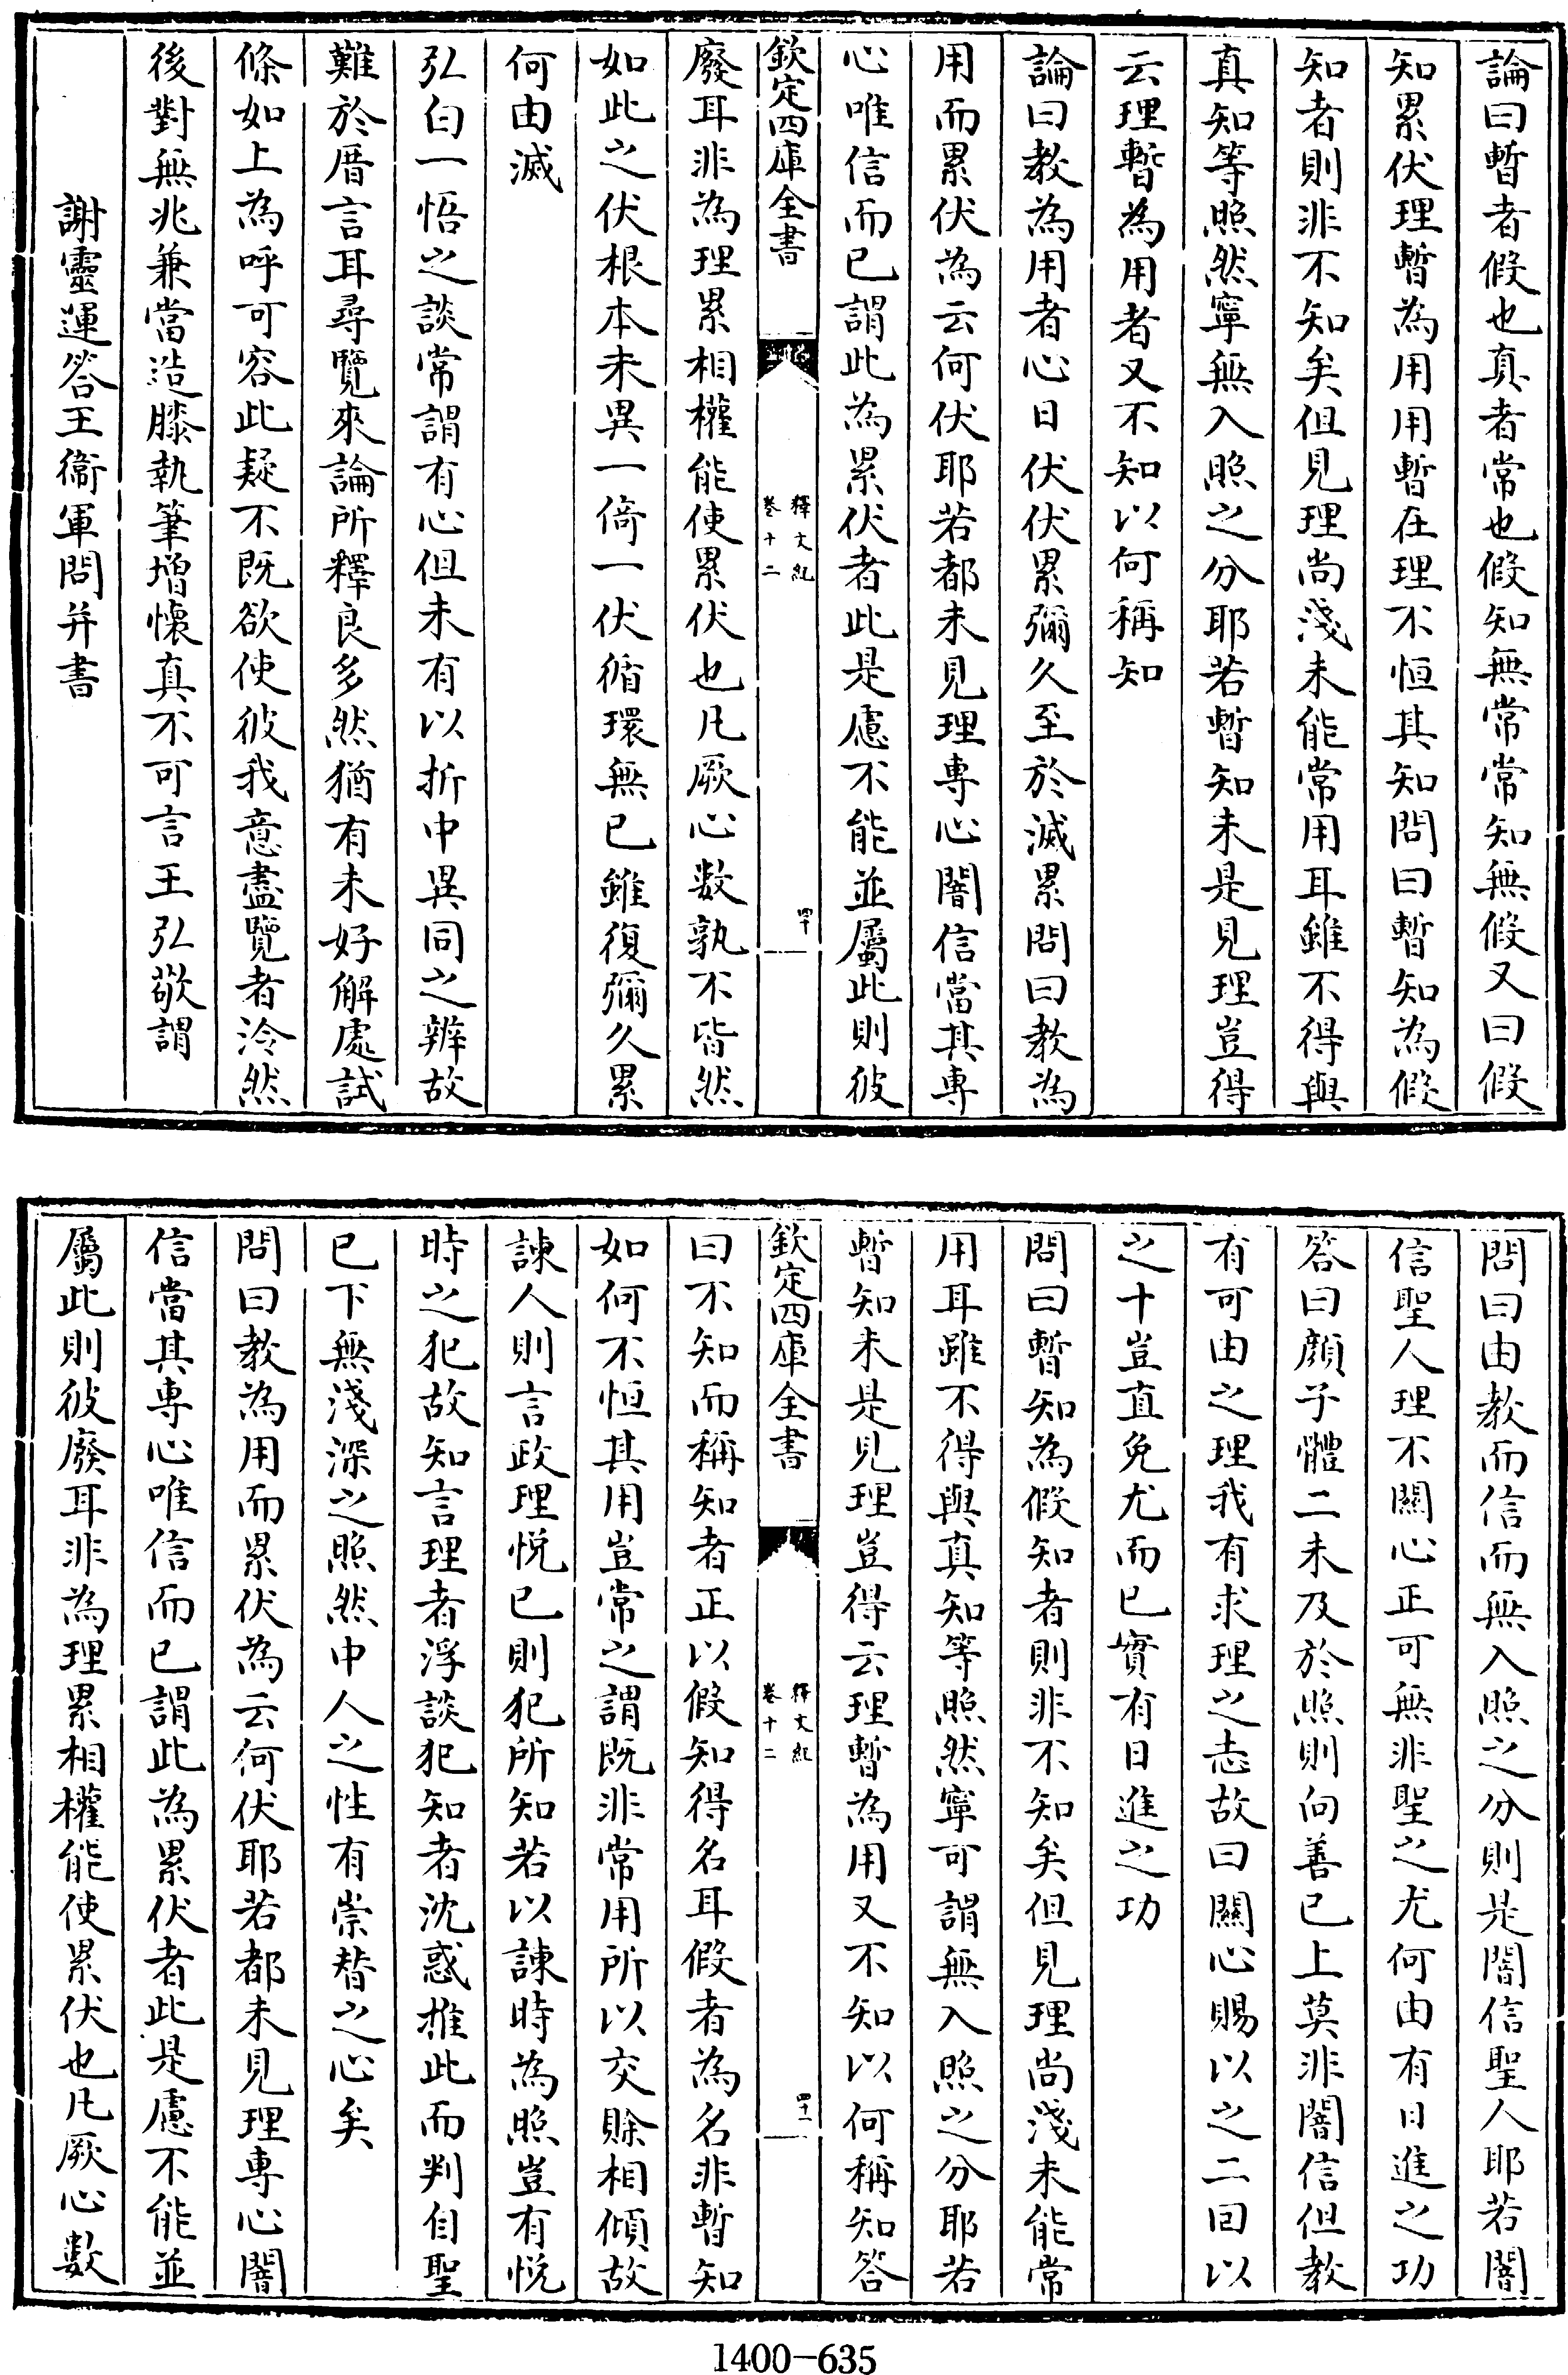 論曰暫者假也真者常也假知無常常知無假又曰假
知累伏理暫為用用暫在理不恒其知問曰暫知為假
知者則非不知矣但見理尚淺未能常用耳雖不得與
真知等照然寧無入照之分耶若暫知未是見理豈得
云理暫為用者又不知以何稱知
論曰教為用者心日伏伏累彌久至於滅累問曰教為
用而累伏為云何伏耶若都未見理專心闇信當其專
心唯信而已謂此為累伏者此是慮不能並屬此則彼
欽定四庫全書
釋文紀
卷十二
四十
廢耳非為理累相權能使累伏也凡厥心數孰不皆然
如此之伏根本未異一倚一伏循環無已雖復彌久累
何由滅
弘白一悟之談常謂有心但未有以折中異同之辨故
難於厝言耳尋覽來論所釋良多然猶有未好解處試
條如上為呼可容此疑不既欲使彼我意盡覽者泠然
後對無兆兼當造膝執筆增懷真不可言王弘敬謂
謝靈運答王衞軍問并書
問曰由教而信而無入照之分則是闇信聖人耶若闇
信聖人理不關心正可無非聖之尤何由有日進之功
答曰顔子體二未及於照則向善已上莫非闇信但教
有可由之理我有求理之志故曰關心賜以之二回以
之十豈直免尤而已實有日進之功
問曰暫知為假知者則非不知矣但見理尚淺未能常
用耳雖不得與真知等照然寧可謂無入照之分耶若
暫知未是見理豈得云理暫為用又不知以何稱知答
欽定四庫全書
釋文紀
卷十二
四十一
曰不知而稱知者正以假知得名耳假者為名非暫知
如何不恒其用豈常之謂既非常用所以交賒相傾故
諫人則言政理悦已則犯所知若以諫時為照豈有悦
時之犯故知言理者浮談犯知者沈惑推此而判自聖
已下無淺深之照然中人之性有崇替之心矣
問曰教為用而累伏為云何伏耶若都未見理專心闇
信當其專心唯信而已謂此為累伏者此是慮不能並
屬此則彼廢耳非為理累相權能使累伏也凡厥心數
1400-635